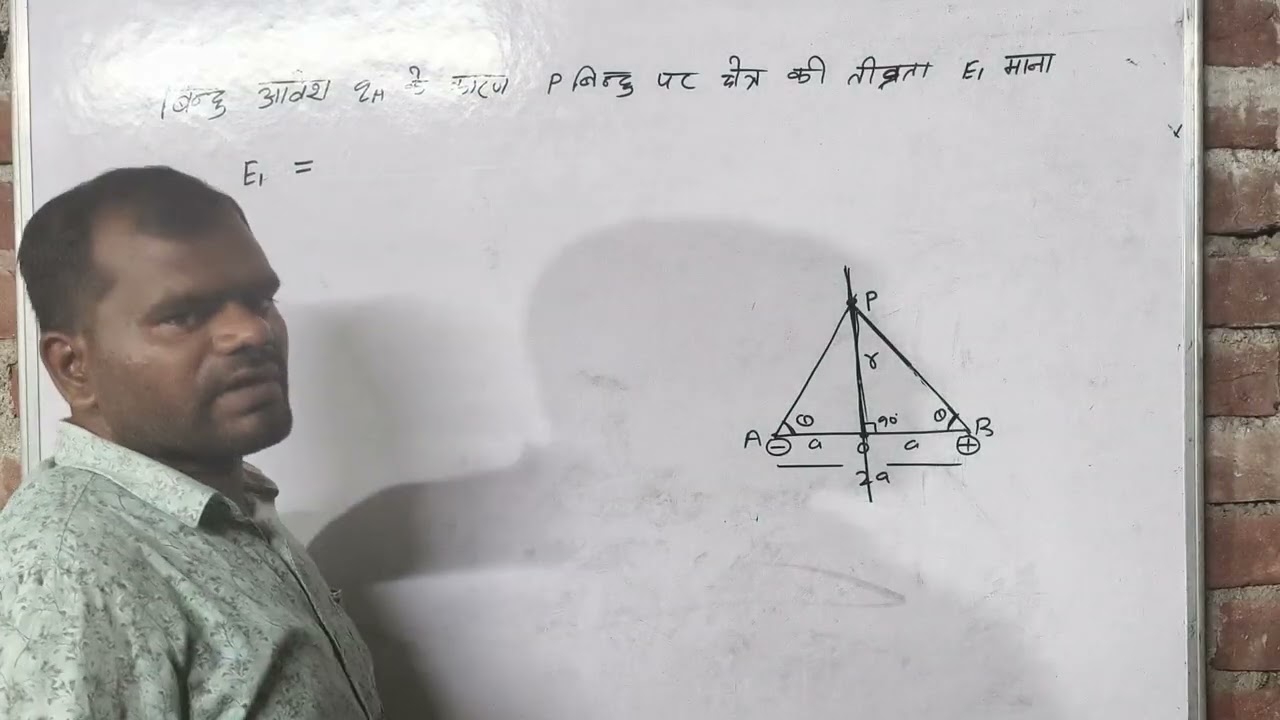 बिन्दु आवेश qA के कारण P बिन्दु पर क्षेत्र की तीव्रता E₁ माना
E₁ =
P
r
θ 90° θ
A a o a B
- +
2a